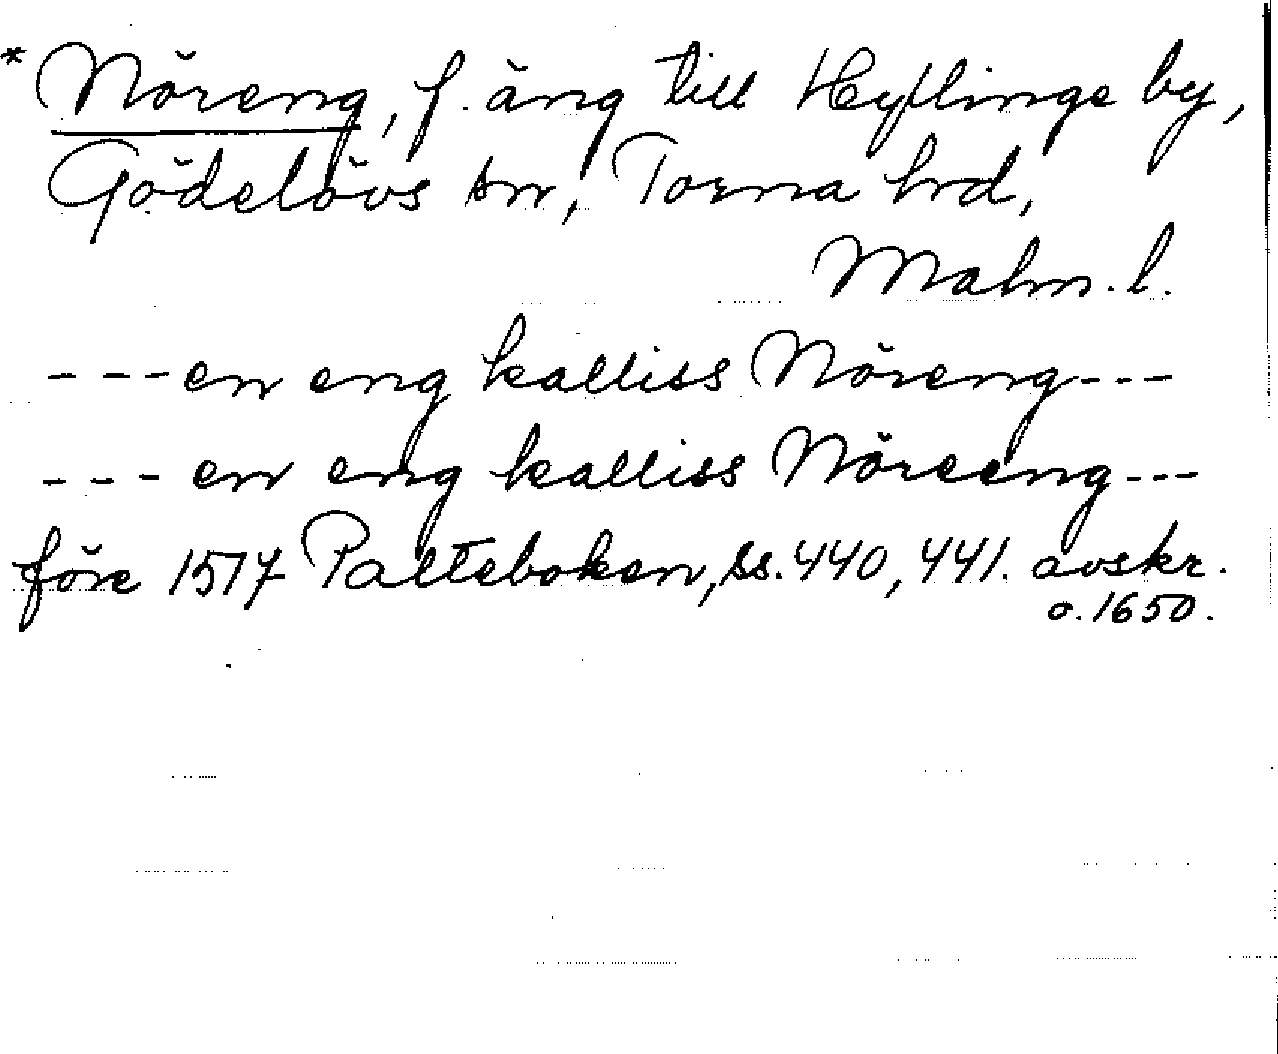 * Nöreng, f. äng till Heflinge by,
Gödelövs sn, Torna hrd,
Malm. l.
---en eng kalliss Nöreng---
---en eng kalliss Nöreeng---
före 1517 Palteboken, ss. 440, 441. avskr.
o. 1650.